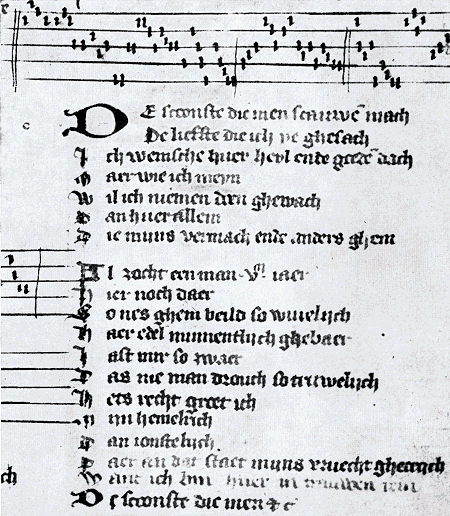 De sconste die men scauwen mach
De liefste die ich ye ghesach
Ich wensche huer heyl ende goeden dach
Maer wie ich meyn
Wil ich niemen doen ghewach
Dan huer allein
Die muns vermach ende anders ghein
Al zocht een man vm iaer
Hier noch daer
So nes ghein beild so wivelijch
Haer edel minnentlijch ghebaer
Last mir so zwaer
Das nie man drouch so truwelijch
Hets recht groet ich
in hemelijch
an ionstelijch
Maer an dat stact muns vruecht ghelijch
ich bin huer in trauwen
De sconste die men etc
ch